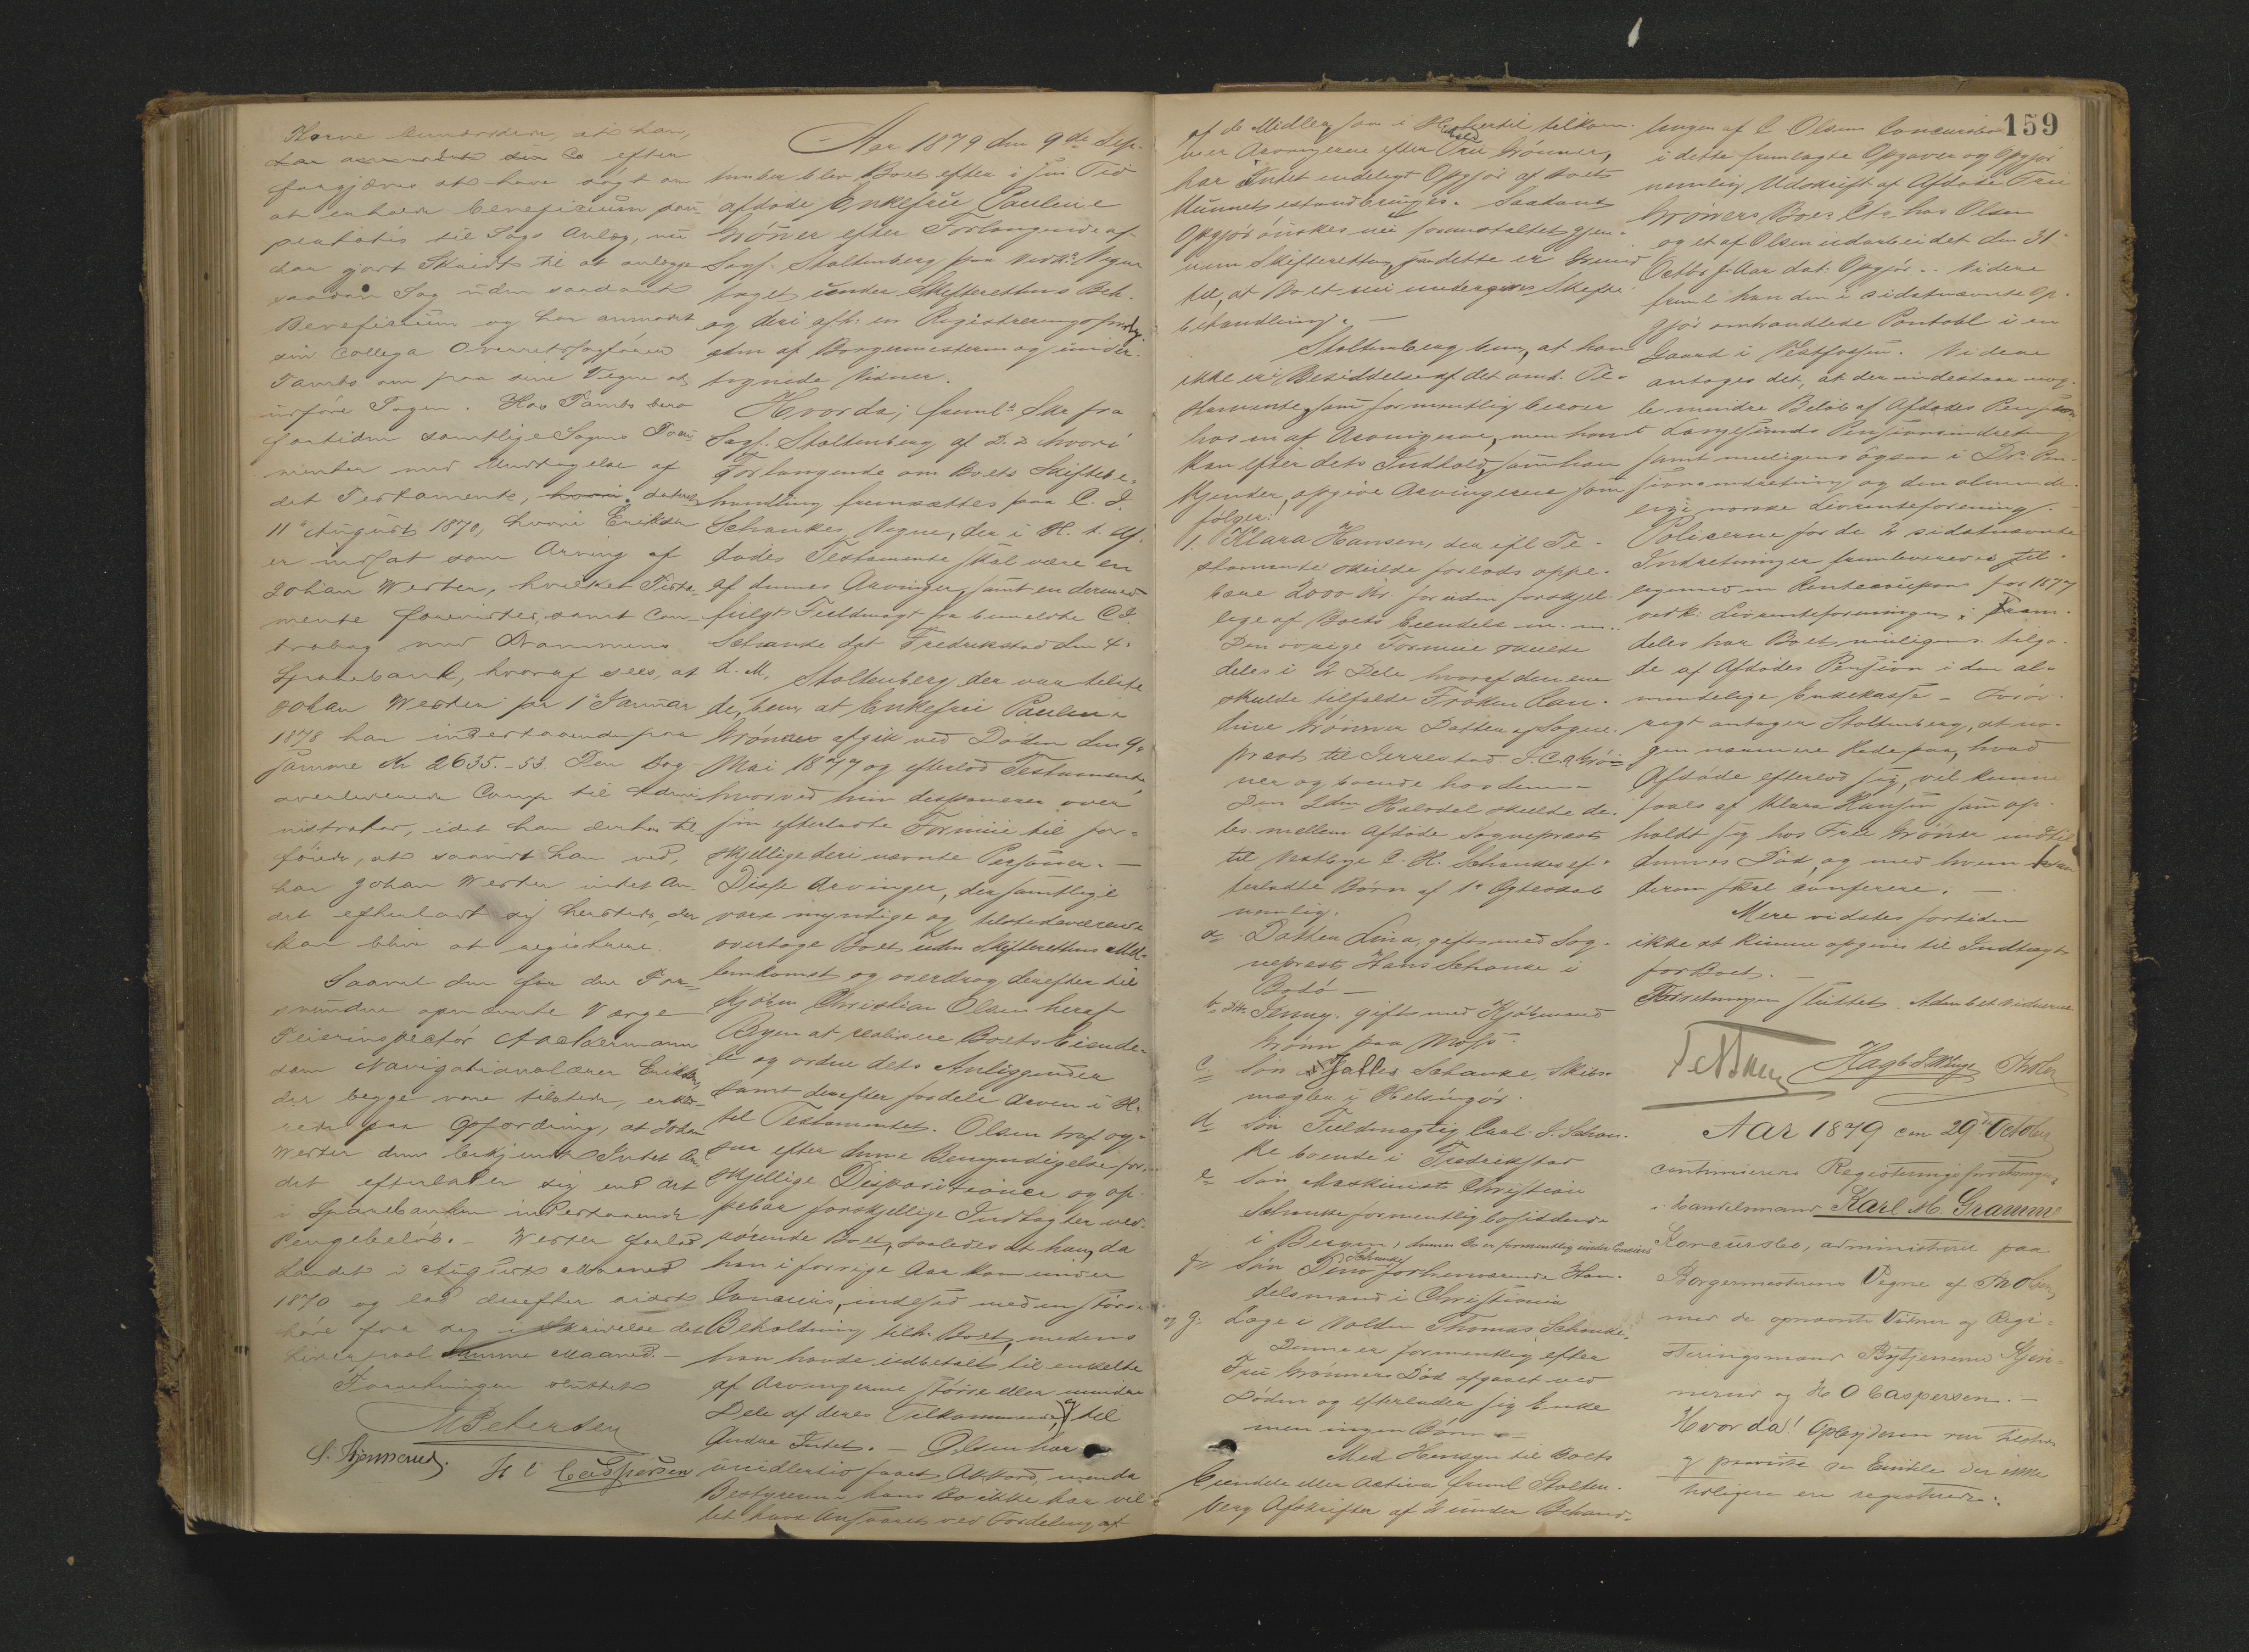 Horne bemærkede, at han,
har anvendt sin Co efter
forgjæves at have søgt om
at erholde beneficium pau-
pertatis til Sags Anlæg, nu
har gjort Skridt til at anlægge
saadan Sag uden saadant
Beneficium og har anmodet
sin Collega Overretssagfører
Tambs om paa sine Vegne at
udføre Sagen. Hos Tambs bero
fortiden samtlige Sagens Docu-
menter med Undtagelse af
det Testamente, hvori dateret
11te August 1870, hvori Eriksen
er indsat som Arving af
Johan Wester, hvilket Testa-
mente forevistes, samt Con-
trabog med Drammens
Sparebank, hvoraf sees, at
Johan Wester pr 1te Januar
1878 har indestaaende paa
samme Kr 2635.-53. Den Bog
overleveredes Comp til Admi-
nistrator, idet han derhos til-
føiede, at saavidt han ved,
har Johan Wester intet An-
det efterladt sig herstede, der
kan blive at registrere.
Saavel den for den For-
svundne opnævnte Værge
Feierinspectør Ackermann
som Navigationslærer Eriksen,
der begge vare tilstede, erklæ-
rede paa Opfordring, at Johan
Wester dem bekjendt Intet An-
det efterlader sig end det
i Sparebanken indestaaende
Pengebeløb. - Wester forlod
Landet i August Maaned
1870 og lod derefter sidst
høre fra sig i Skrivelse dat
Liverpool samme Maaned. -
Forretningen sluttet
M Petersen
S. Stjernerud. H O Caspersen
Aar 1879 den 9de Sep-
tember blev Boet efter i sin Tid
afdøde Enkefrue Pauline
Grøner efter Forlangende af
Sagf. Stoltenberg paa Vedk. Vegne
taget under Skifterettens Beh.
og deri afh. en Registreringsforretn.
etn af Borgermesteren og under-
tegnede Vidner.
Hvorda; fremlr. Skr fra
Sagf. Stoltenberg af D. D. hvori
Forlangende om Boets Skiftebe-
handling fremsættes paa C. J.
Schankes Vegne, der i H. t. Af-
dødes Testamente skal være en
af dennes Arvinger, samt en dermed
fulgt Fuldmagt fra bemeldte C J
Schanke dat Fredrikstad den 4.
d. M. Stoltenberg der var tilste-
de, bem, at Enkefrue Pauline
Grønner afgik ved Døden den 9.
Mai 1877 og efterlod Testamente,
hvorved hun disponerer over
sin efterladte Formue til for-
skjellige deri nævnte Personer. -
Disse Arvinger, der samtlige
vare myndige og tilstedeværende
overtoge Boet uden Skifterettens Mel-
lemkomst og overdrog derefter til
Kjøbm Christian Olsen heraf
Byen at realisere Boets Eiende-
le og ordne dets Anliggender
samt derefter fordele Arven i H.
til Testamentet. Olsen traf og-
saa efter denne Bemyndigelse for-
skjellige Dispositioner og op-
pebar forskjellige Indtægter ved-
rørende Boet, saaledes at han, da
han i forrige Aar kom under
Concurs, indesad med en større
Beholdning tilh. Boet, medens
han havde udbetalt til enkelte
af Arvingerne større eller mindre
Dele af deres Tilkommende, og til
Andre Intet. - Olsen har
imidlertid faaet Akkord, men da
Bestyreren i hans Bo ikke har vil-
let have Ansvaret ved Fordeling af
159
af de Midler, som i Henhold hertil tilkom-
mer Arvingerne efter Frue Grønner,
har Intet endeligt Opgjør af Boets
kunnet istandbringes. Saadant
Opgjør ønskes nu foranstaltet gjen-
nem Skifteretten, da dette er Grund
til, at Boet nu undergives Skifte-
behandling. -
Stoltenberg bem, at han
ikke er i Besiddelse af det omh. Te-
stamente, som formentlig beror
hos en af Arvingerne, men han
kan efter dets Indhold, som han
kjender, opgive Arvingerne som
følger:
1. Klara Hansen, der efl Te-
stamente skulde forlods oppe-
bære 2000 Kr. foruden forskjel-
lige af Boets Eiendele m. m.
Den øvrige Formue skulde
deles i 2 Dele hvoraf den ene
skulde tilfalde Frøken Lau-
line Grønner Datter af Sogne-
præst til Jerrestad J. C. A Grøn-
ner og boende hos denne -
Den 2den Halvdel skulde de-
les mellem afdøde Sognepræst
til Vestbye C. H. Schankes ef-
terladte Børn af 1te Ægteskab
nemlig.
a. Datter Lina, gift med Sog-
nepræst Hans Schanke i
Bodø -
b. dtr Jenny. gift med Kjøbmand
Grønn paa Moss.
c. Søn Palle Schanke, Skibs-
mægler i Helsingør.
d. Søn Fuldmægtig Carl. J. Schan-
ke boende i Fredrikstad
e. Søn Maskinist Christian
Schanke formentlig bosiddende
i Bergen, dennes Bo er formentlig under Concurs
f. Søn Peter Schanke forhenværende Han-
delsmand i Christiania
og g. Læge i Volden Thomas Schanke.
Denne er formentlig efter
Frue Grønners Død afgaaet ved
Døden og efterlader sig Enke
men ingen Børn -
Med Hensyn til Boets
Eiendele eller Activa freml Stolten-
berg Afskrifter af 2 under Behand-
lingen af C Olsens Concursbo
i dette fremlagte Opgaver og Opgjør
nemlig Udskrift af Afdøde Frue
Grønners Boes Cto hos Olsen
og et af Olsen udarbeidet den 31
Octbr f. Aar dat: Opgjør. - Videre
freml han den i sidstnævnte Op-
gjør omhandlede Pantobl i en
Gaard i Vestfossen. Videre
antages det, at der indestaar nog-
le mindre Beløb af Afdødes Pension
i Langesunds Pensionsindretning
samt muligens ogsaa i Dr. Pen-
sionsindretning og den alminde-
lige norske Livrenteforening.
Policerne for de 2 sidstnævnte
Indretninger fremleveredes til-
ligemed en Rentecoupon for 1877
vedk. Livrenteforeningen. Frem-
deles har Boet muligens tilgo-
de af Afdødes Pension i den al-
mindelige Enkekasse - Forøv-
rigt antager Stoltenberg, at no-
gen nærmere Rede paa, hvad
Afdøde efterlod sig, vil kunne
faaes af Klara Hansen som op-
holdt sig hos Frue Grønner indtil
dennes Død, og med hvem han
derom skal conferere. -
Mere vidstes fortiden
ikke at kunne opgives til Indtægt
for Boet. -
Forretningen sluttet. Adm bet Vidnerne
Aar 1879 den 29de October
continueres Registreringsforretningen
i Handelsmand Karl M. Gramme
Koncursbo, administreret paa
Borgermesterens Vegne af Th Olsen,
med de opnævnte Vidner og Regi-
streringsmænd Bytjenerne Stjer-
nerud og H O Caspersen. -
Hvor da! Opbyderen var tilstede
og paaviste de Eiendele der ikke
tidligere ere registrerede: